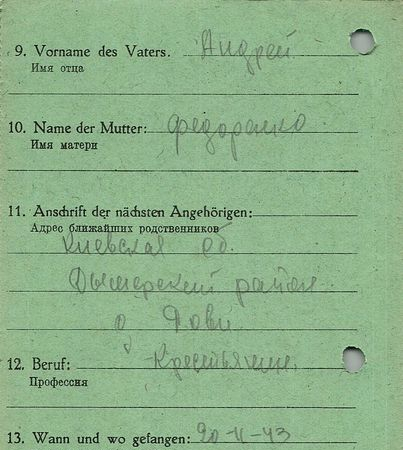 9. Vorname des Vaters. Андрей
Имя отца
10. Name der Mutter: Федоренко
Имя матери
11. Anschrift der nächsten Angehörigen:
Адрес ближайших родственников
Киевская об.
Дымерский район
12. Beruf: Крестьянин
Профессия
13. Wann und wo gefangen: 20-II-43